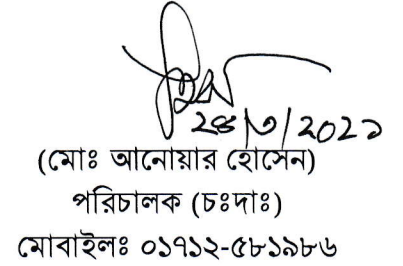 ২৪/৩/২০২১
(মোঃ আনোয়ার হোসেন)
পরিচালক (চঃদাঃ)
মোবাইলঃ ০১৭১২-৫৮১৯৮৬